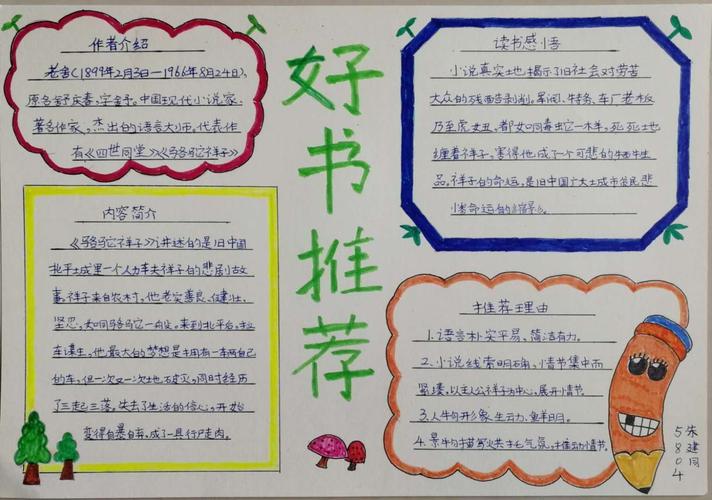 好书推荐
作者介绍
老舍(1899年2月3日—1966年8月24日),
原名舒庆春,字舍予。中国现代小说家,
著名作家,杰出的语言大师。代表作
有《四世同堂》《骆驼祥子》
内容简介
《骆驼祥子》讲述的是旧中国
北平城里一个人力车夫祥子的悲剧故
事。祥子来自农村,他老实善良、健壮、
坚忍,如同骆驼一般。来到北平后,拉
车谋生,他最大的梦想是拥有一车两自己
的车,但一次又一次地破灭,同时经历
了三起三落,失去了生活的信心,开始
变得自暴自弃,成了一具行尸走肉。
读书感悟
小说真实地揭示了旧社会对劳苦
大众的残酷剥削。军阀、特务、车厂老板
乃至虎女丑,都如同毒蛇一样,死死地
缠着祥子,害得他成了一个可悲的牺牲
品。祥子的命运,是旧中国广大城市贫民悲
惨命运的缩影。
推荐理由
1.语言朴实平易、简洁有力。
2.小说线索明确,情节集中而
紧凑,以主人公祥子为中心,展开情节。
3.人物形象生动、鲜明。
4.景物描写烘托气氛,推动情节。
朱建同
5804